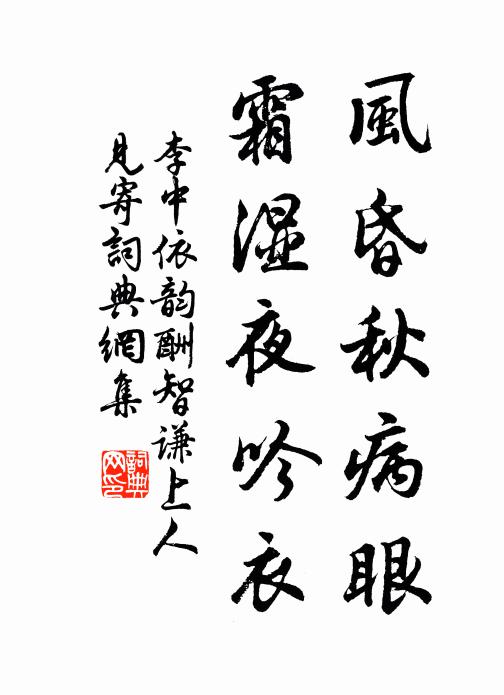 風昏秋病眼
霜湿夜吟衣
李中依韵酬智谦上人
見寄詞典網集
詞典
网印